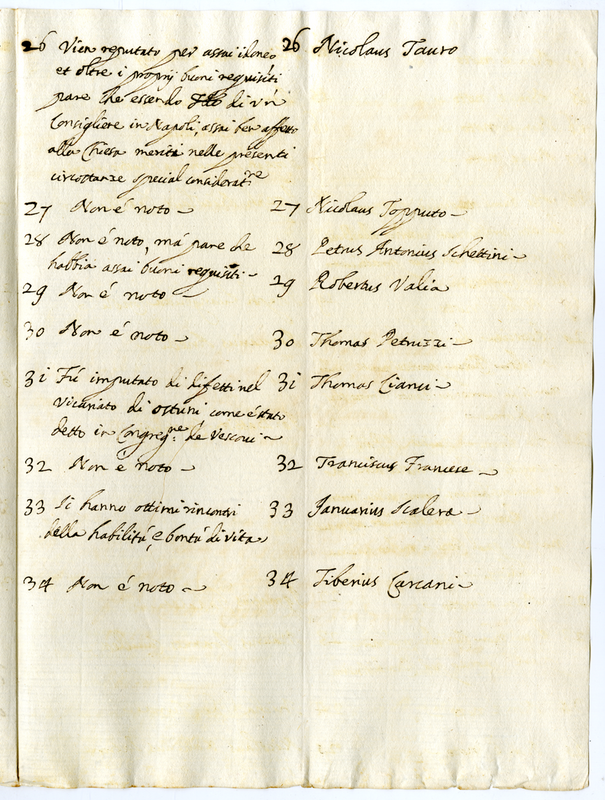 26 Vien reputato per assai idoneo
et oltre i proprij buoni requisiti
pare che essendo di un
Consigliere in Napoli, assai ben affetto
alla Chiesa merita nelle presenti
circostanze special considerat.ne
27 Non é noto
28 Non é noto, má pare che
habbia assai buoni requisiti
29 Non é noto
30 Non é noto
31 Fú imputato di difetti nel
Vicariato di Ostuni come é stato
detto in Congreg.ne de Vescovi
32 Non é noto
33 Si hanno ottimi rincontri
della habilitá, e bontá di vita
34 Non é noto
26 Nicolaus Tauro
27 Nicolaus Topputo
28 Petrus Antonius Schettini
29 Robertus Valia
30 Thomas Petruzzi
31 Thomas Cianci
32 Franciscus Francese
33 Januarius Scalera
34 Tiberius Carcani